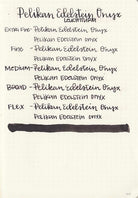 Pelikan Edelstein Onyx
EXTRA FINE - Pelikan Edelstein Onyx
PELIKAN EDELSTEIN ONYX
FINE - Pelikan Edelstein Onyx
PELIKAN EDELSTEIN ONYX
MEDIUM - Pelikan Edelstein Onyx
PELIKAN EDELSTEIN ONYX
BROAD - Pelikan Edelstein Onyx
PELIKAN EDELSTEIN ONYX
FLEX - Pelikan Edelstein Onyx
PELIKAN EDELSTEIN ONYX